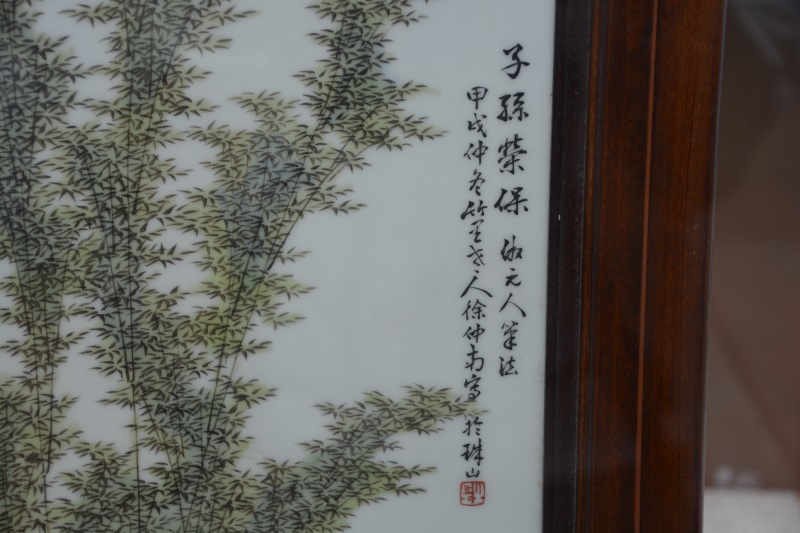 子孫榮保 仿元人筆法
甲戌仲冬竹里老人徐仲南寫於珠山